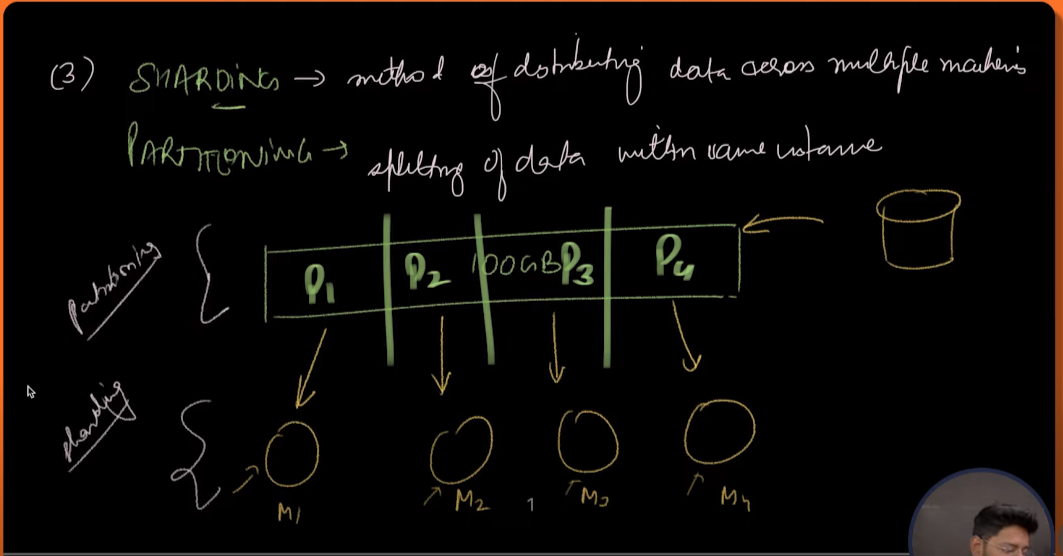 (3) SHARDING → method of distributing data across multiple machines
PARTITIONING → splitting of data within same instance
partitioning
P1 P2 100GB P3 P4
sharding
M1 M2 1 M3 M4